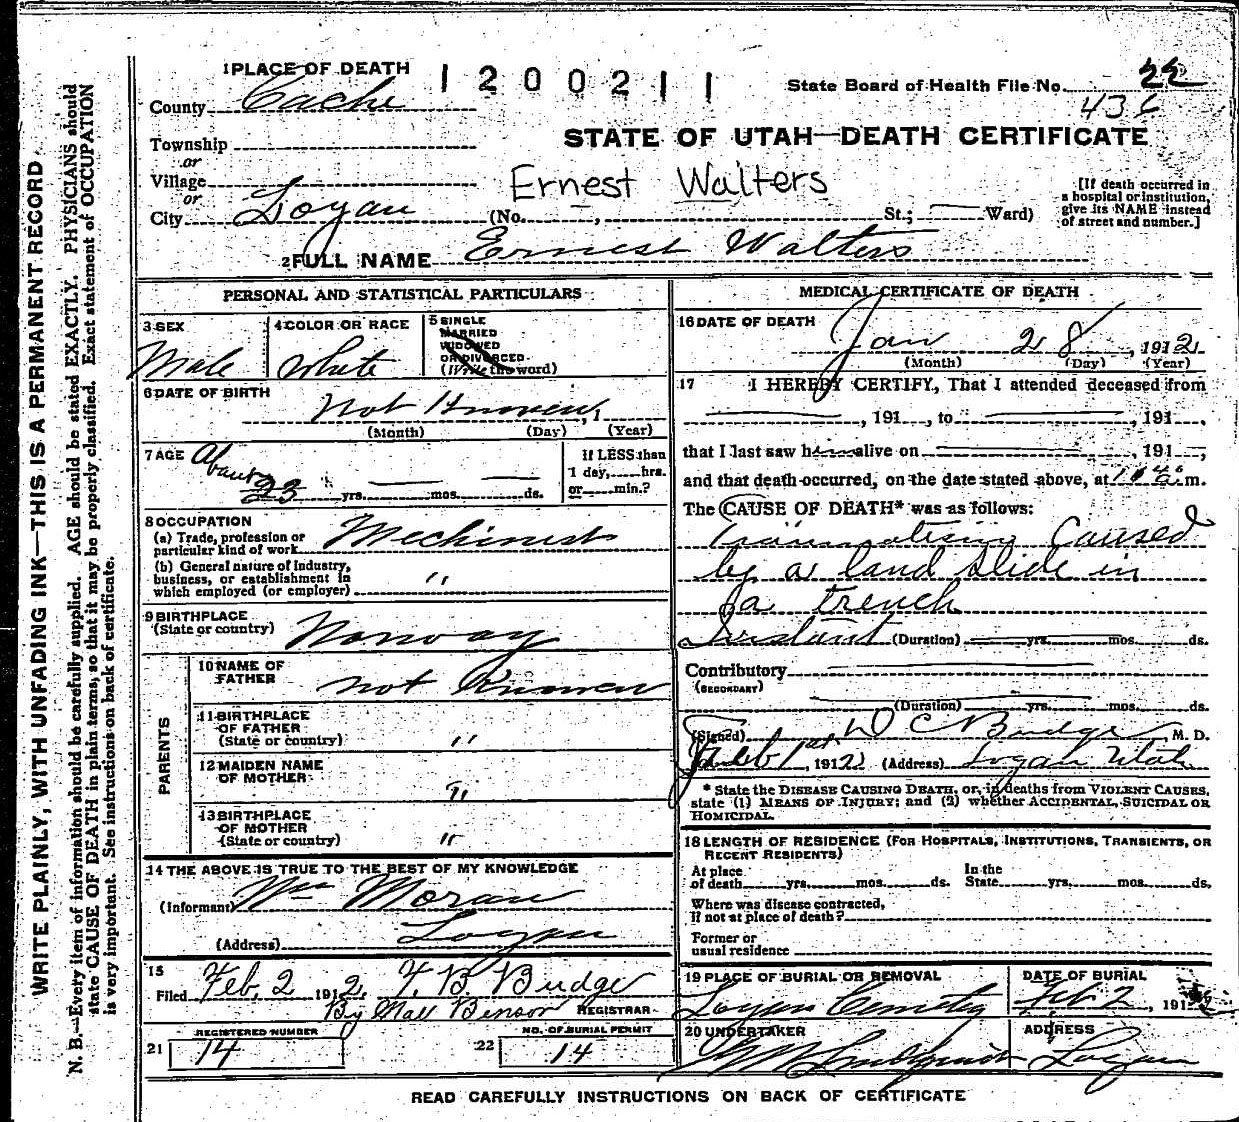 WRITE PLAINLY, WITH UNFADING INK—THIS IS A PERMANENT RECORD
N. B.—Every item of information should be carefully supplied. AGE should be stated EXACTLY. PHYSICIANS should
state CAUSE OF DEATH in plain terms, so that it may be properly classified. Exact statement of OCCUPATION
is very important. See instructions on back of certificate.
1 PLACE OF DEATH
1200211
State Board of Health File No. 22
436
County Cache
STATE OF UTAH—DEATH CERTIFICATE
Township
or
Village
or
Ernest Walters
City Logan (No. , St.; Ward)
[If death occurred in
a hospital or institution,
give its NAME instead
of street and number.]
2 FULL NAME Ernest Walters
PERSONAL AND STATISTICAL PARTICULARS
3 SEX
Male
4 COLOR OR RACE
White
5 SINGLE
MARRIED
WIDOWED
OR DIVORCED
(Write the word)
6 DATE OF BIRTH
not Known, 1
(Month) (Day) (Year)
7 AGE
About
23 yrs. mos. ds.
If LESS than
1 day, hrs.
or min.?
8 OCCUPATION
(a) Trade, profession or
particular kind of work Mechinest
(b) General nature of industry,
business, or establishment in
which employed (or employer) "
9 BIRTHPLACE
(State or country) Norway
PARENTS
10 NAME OF
FATHER not Known
11 BIRTHPLACE
OF FATHER
(State or country) "
12 MAIDEN NAME
OF MOTHER "
13 BIRTHPLACE
OF MOTHER
(State or country) "
14 THE ABOVE IS TRUE TO THE BEST OF MY KNOWLEDGE
(Informant) Moran
(Address) Logan
15
Filed Feb, 2 1912, F. B. Budge
By Mall Benson REGISTRAR
REGISTERED NUMBER
21 14
NO. OF BURIAL PERMIT
22 14
MEDICAL CERTIFICATE OF DEATH
16 DATE OF DEATH
Jan 28, 1912
(Month) (Day) (Year)
17 I HEREBY CERTIFY, That I attended deceased from
, 191 , to , 191 ,
that I last saw h alive on , 191 ,
and that death occurred, on the date stated above, at m.
The CAUSE OF DEATH* was as follows:
Traumatising Caused
by a land slide in
a trench
Instant (Duration) yrs. mos. ds.
Contributory
(SECONDARY)
(Duration) yrs. mos. ds.
(Signed) D C Budge, M. D.
Feb 1st, 1912 (Address) Logan Utah
* State the DISEASE CAUSING DEATH, or, in deaths from VIOLENT CAUSES,
state (1) MEANS OF INJURY; and (2) whether ACCIDENTAL, SUICIDAL OR
HOMICIDAL.
18 LENGTH OF RESIDENCE (FOR HOSPITALS, INSTITUTIONS, TRANSIENTS, OR
RECENT RESIDENTS)
At place
of death yrs. mos. ds.
In the
State yrs. mos. ds.
Where was disease contracted,
if not at place of death?
Former or
usual residence
19 PLACE OF BURIAL OR REMOVAL
Logan Cemetery
DATE OF BURIAL
Feb 2, 191
20 UNDERTAKER
ADDRESS
Logan
READ CAREFULLY INSTRUCTIONS ON BACK OF CERTIFICATE